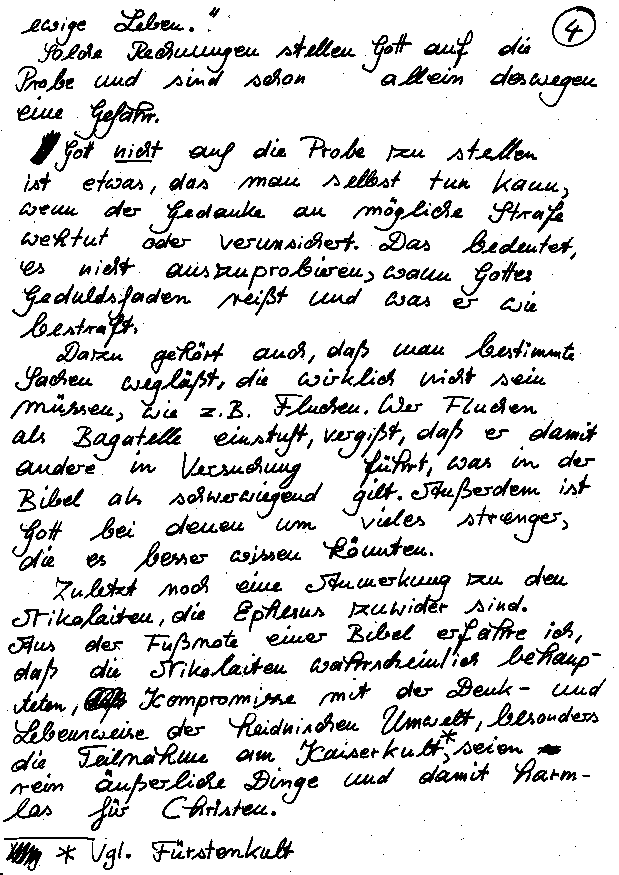 ewige Leben."
④
Solche Rechnungen stellen Gott auf die
Probe und sind schon allein deswegen
eine Gefahr.
Gott nicht auf die Probe zu stellen
ist etwas, das man selbst tun kann,
wenn der Gedanke an mögliche Strafe
wehtut oder verunsichert. Das bedeutet,
es nicht auszuprobieren, wann Gottes
Geduldsfaden reißt und was er wie
bestraft.
Dazu gehört auch, daß man bestimmte
Sachen wegläßt, die wirklich nicht sein
müssen, wie z.B. Fluchen. Wer Fluchen
als Bagatelle einstuft, vergißt, daß er damit
andere in Versuchung führt, was in der
Bibel als schwerwiegend gilt. Außerdem ist
Gott bei denen um vieles strenger,
die es besser wissen könnten.
Zuletzt noch eine Anmerkung zu den
Nikolaiten, die Ephesus zuwider sind.
Aus der Fußnote einer Bibel erfahre ich,
daß die Nikolaiten wahrscheinlich behaup-
teten, Kompromisse mit der Denk- und
Lebensweise der heidnischen Umwelt, besonders
die Teilnahme am Kaiserkult*, seien
rein äußerliche Dinge und damit harm-
los für Christen.
* Vgl. Fürstenkult